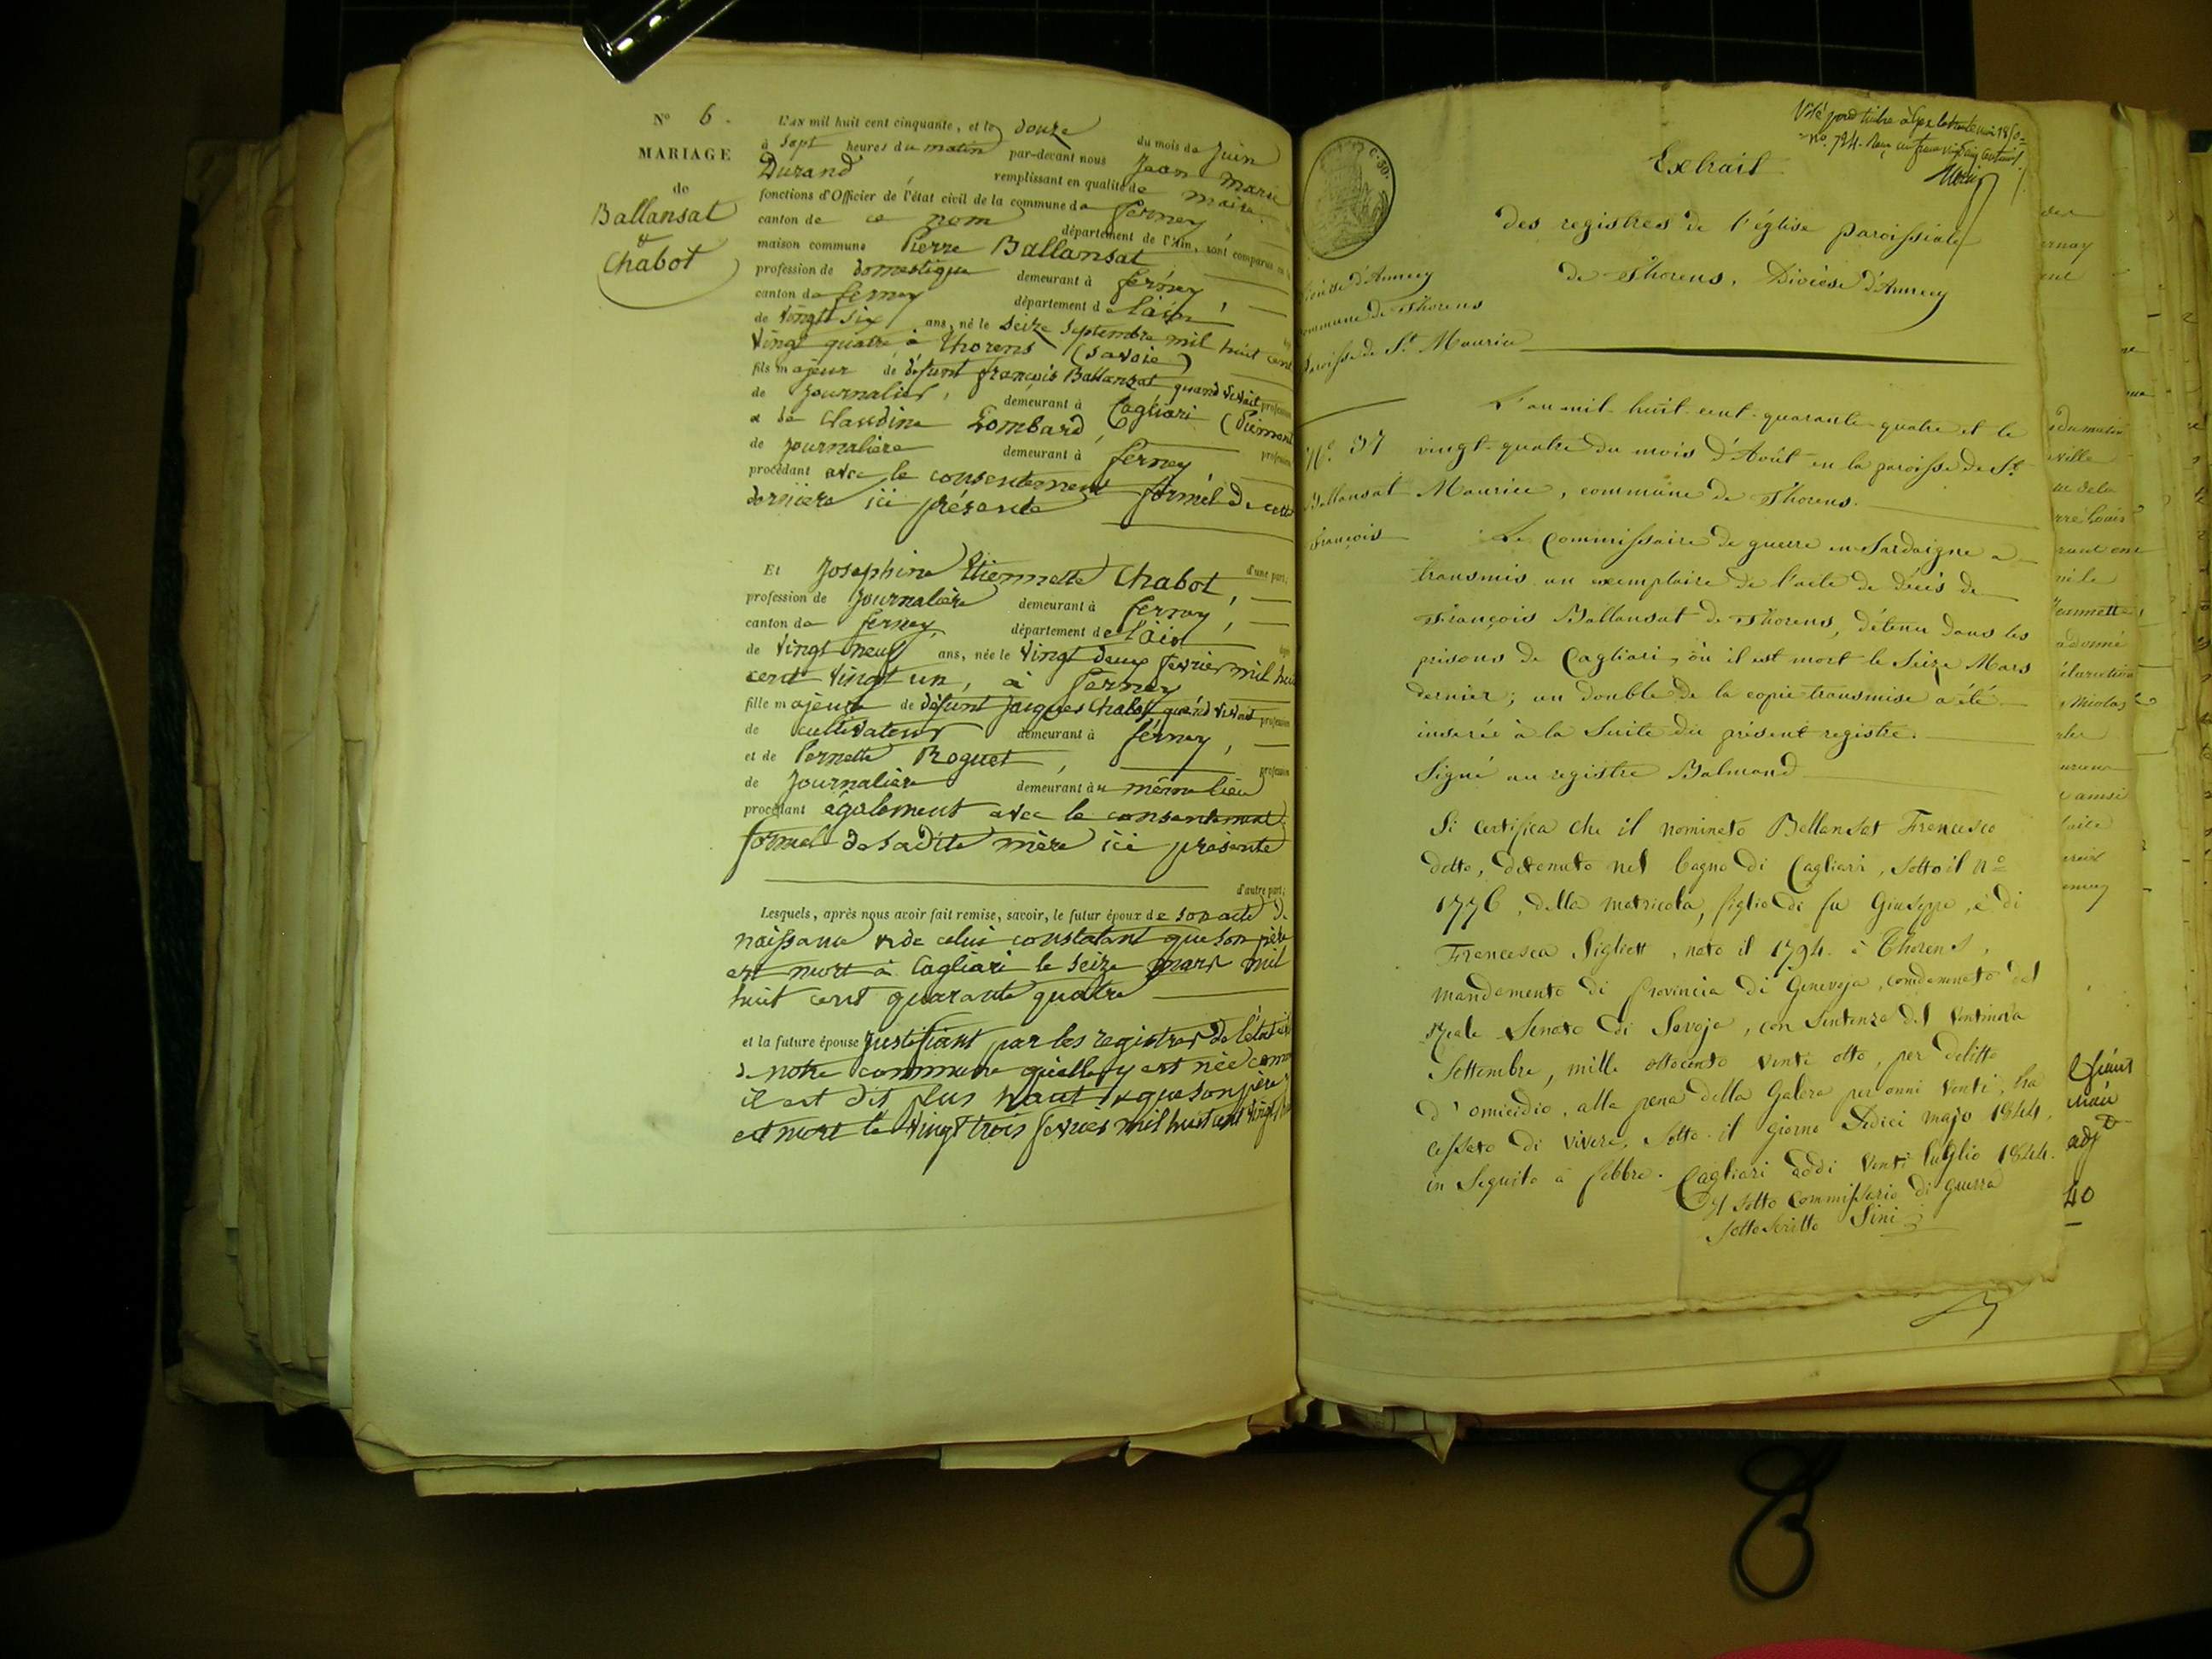 Nº 6.
MARIAGE
de
Ballansat
&
Chabot
L'an mil huit cent cinquante, et le douze du mois de Juin
à sept heures du matin par-devant nous Jean Marie
Durand remplissant en qualité de maire
fonctions d'Officier de l'état civil de la commune de ferney
canton de ce nom département de l'Ain, sont comparus en la
maison commune Pierre Ballansat
profession de domestique demeurant à ferney,
canton de ferney département de l'ain,
de vingt six ans, né le seize septembre mil huit cent
vingt quatre à Thorens (savoie)
fils majeur de défunt françois Ballansat quand vivait profession
de Journalier, demeurant à Cagliari (Piémont
& de Claudine Lombard, profession
de Journalière demeurant à ferney,
procédant avec le consentement formel de cette
dernière ici présente
d'une part;
Et Josephine Etiennette Chabot,
profession de Journalière demeurant à ferney,
canton de ferney département de l'ain
de vingt neuf ans, née le vingt deux fevrier mil huit
cent vingt un, à ferney
fille majeure de défunt Jacques Chabot quand vivait profession
de cultivateur demeurant à ferney,
et de Pernette Roguet, profession
de Journalière demeurant au même lieu
procédant également avec le consentement
formel de sadite mère ici présente
d'autre part;
Lesquels, après nous avoir fait remise, savoir, le futur époux de son acte de
naissance & de celui constatant que son père
est mort à Cagliari le seize mars mil
huit cent quarante quatre
et la future épouse justifiant par les registres de l'état civil
de notre commune qu'elle y est née comme
il est dit plus haut & que son père
est mort le vingt trois fevrier mil huit cent vingt
C. 30.
Visé pour timbre à Gex le trente mai 1850
Nº 724. Reçu un franc vingt cinq centimes
Extrait
des registres de l'église paroissiale
de Thorens, Diocèse d'Annecy
Diocèse d'Annecy
Commune de Thorens
Paroisse de St. Maurice
Nº 37
Ballansat
François
L'an mil huit cent quarante quatre et le
vingt-quatre du mois d'Août en la paroisse de St.
Maurice, commune de Thorens.
Le Commissaire de guerre en Sardaigne a
transmis un exemplaire de l'acte de décès de
François Ballansat de Thorens, détenu dans les
prisons de Cagliari, où il est mort le seize Mars
dernier; un double de la copie transmise a été
insérée à la suite du présent registre.
Signé au registre Balmand
Si certifica che il nominato Ballansat Francesco
detto, detenuto nel bagno di Cagliari, sotto il nº
1776, della matricola, figlio di fu Giuseppe, e di
Francesca, nato il 1794. à Thorens,
mandamento di Provincia di Genevese, condannato dal
Reale Senato di Savoja, con Sentenza del Ventinova
Settembre, mille ottocento venti otto, per delitto
d'omicidio, alla pena della Galera per anni Venti, ha
cessato di vivere, sotto il giorno Sedici marzo 1844.
in seguito a febbre. Cagliari addi Venti luglio 1844.
Il sotto Commissario di guerra
sottoscritto Sini
40